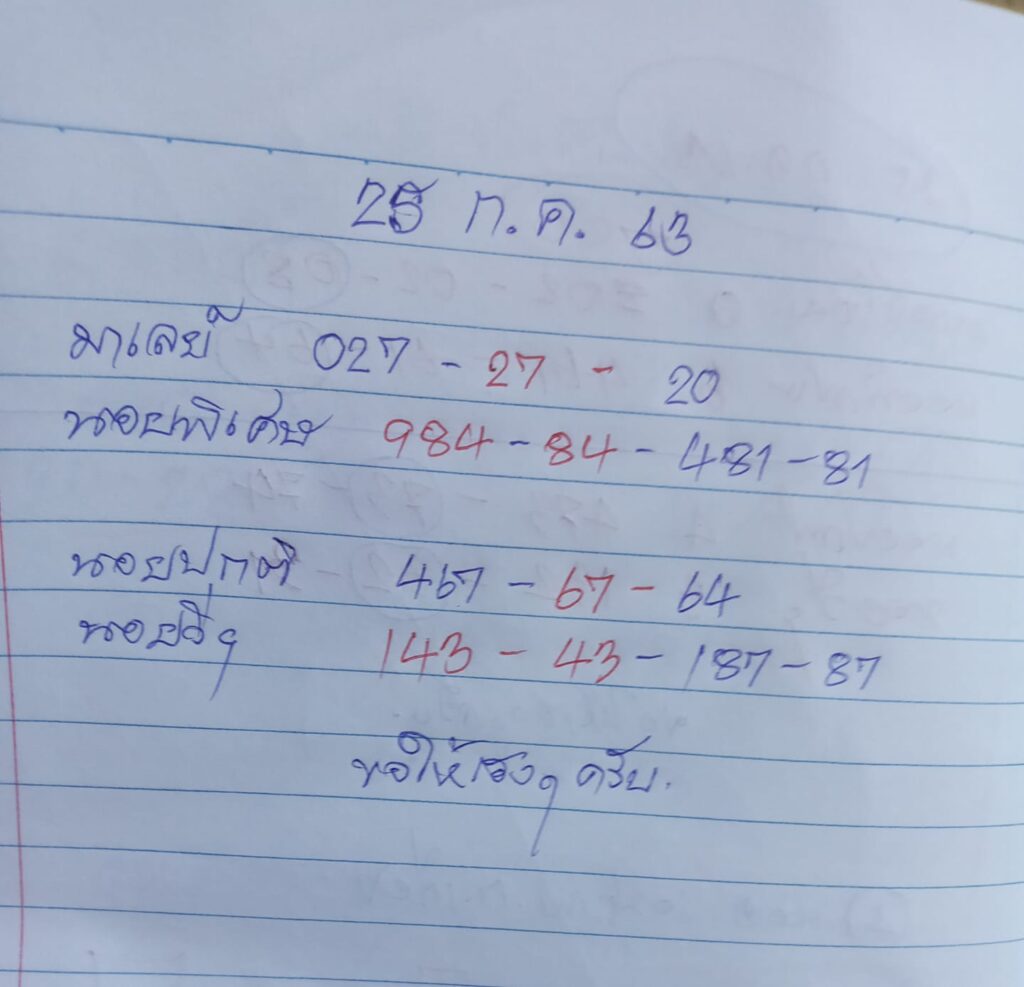 25 ก.ค. 63
มาเลย์ 027 - 27 - 20
นอยพิเศษ 984 - 84 - 481 - 81
นอยปกติ 467 - 67 - 64
นอยวีๆ 143 - 43 - 187 - 87
ขอให้เฮงๆ ครับ.